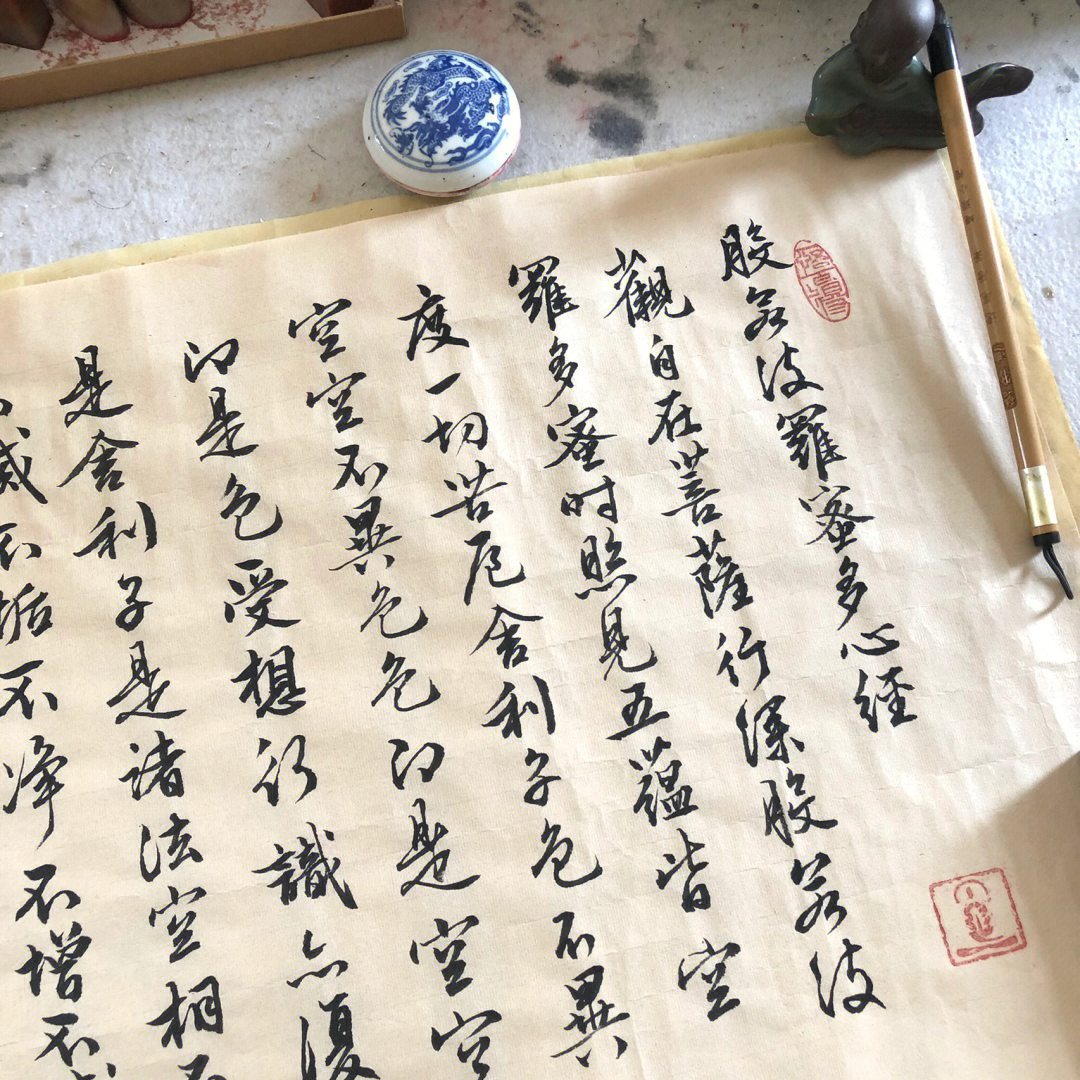 般若波羅蜜多心經
觀自在菩薩行深般若波
羅多蜜时照見五蘊皆空
度一切苦厄舍利子色不異
空空不異色色即是空空
即是色受想行識亦復
是舍利子是諸法空相不
滅不垢不淨不增不